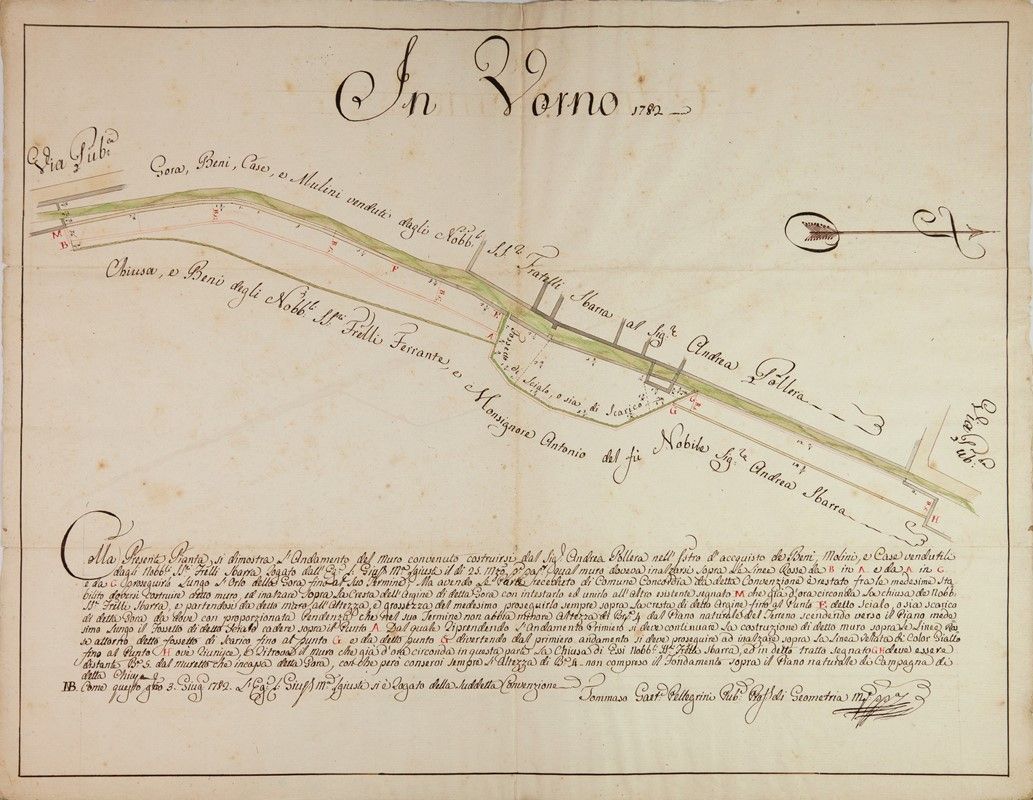 In Vorno 1782
Via Pub.ca
Gora, Beni, Case, e Mulini venduti dagli Nobb. SS.ri Fratelli Sbarra al Sig.re Andrea Pollera
Chiusa, e Beni degli Nobb. SS.ri Frelli Ferrante, e Monsignore Antonio del fù Nobile Sig.re Andrea Sbarra
Fossetto di Scialo, o sia di Scarico
Via Pub.ca
M
B
F
E
A
G
H
Nella Presente Pianta, si dimostra l'Andamento del muro convenuto costruirsi dal Sig.r Andrea Pollera nell' Istro d'acquisto de Beni, Molini, e Case venduteli
dagli Nobb. SS.ri Frelli Sbarra Rogato dall' Giusti il dì 25 Mzo qual muro doveva inalzarsi sopra la Linea Rossa da B in A e da A in G
e da G proseguirsi Lungo l'Orto della Gora fino al suo Termine; Ma avendo le Parti di Comune Concordia da detta Convenzione è restato fra le medesime Sta
bilito doversi Costruire detto muro, ed inalzare sopra la Cresta dell'Argine di detta Gora con intestarlo ed unirlo all'Altro esistente segnato M che già d'ora circonda la chiusa de Nobb.
SS.ri Frelli Sbarra, e partendosi da detto muro all'Altezza, e grossezza del medesimo proseguirlo sempre sopra la cresta di detto Argine fino al Punto E dello Scialo, o sia scarico
di detta Gora da dove con proporzionata Pendenza che nel suo Termine non abbia minore Altezza di 4 dal Piano naturale del Terreno scendendo verso il Piano mede
simo Lungo il Fossetto di detto Scialo cadere sopra il Punto A Dal quale Riprendendo l'Andamento Primiero si deve continuare la costruzione di detto muro sopra la Linea
a altorto detto fossetto di Scarico fino al Punto G, e da detto Punto G divertendo dal primiero andamento si deve proseguire ad inalzare sopra la Linea Vellata di Color Giallo
fino al Punto H ove Riunisce, e Ritrova il muro che già d'ora circonda in questa parte la Chiusa di Essi Nobb. SS.ri Frelli Sbarra, ed in detto tratto segnato GH deve essere
distante B.a 5. dal muretto che incapsa detta Gora, così che però conservi sempre l'Altezza di B.a 4 non compreso il Fondamento sopra il Piano naturale di Campagna di
detta Chiusa
NB. Come questo giorno 3. Giug.o 1782. Giusti si è Rogato della suddetta Convenzione
Tommaso Gaet.o Pellegrini Pub.o Prof. di Geometria